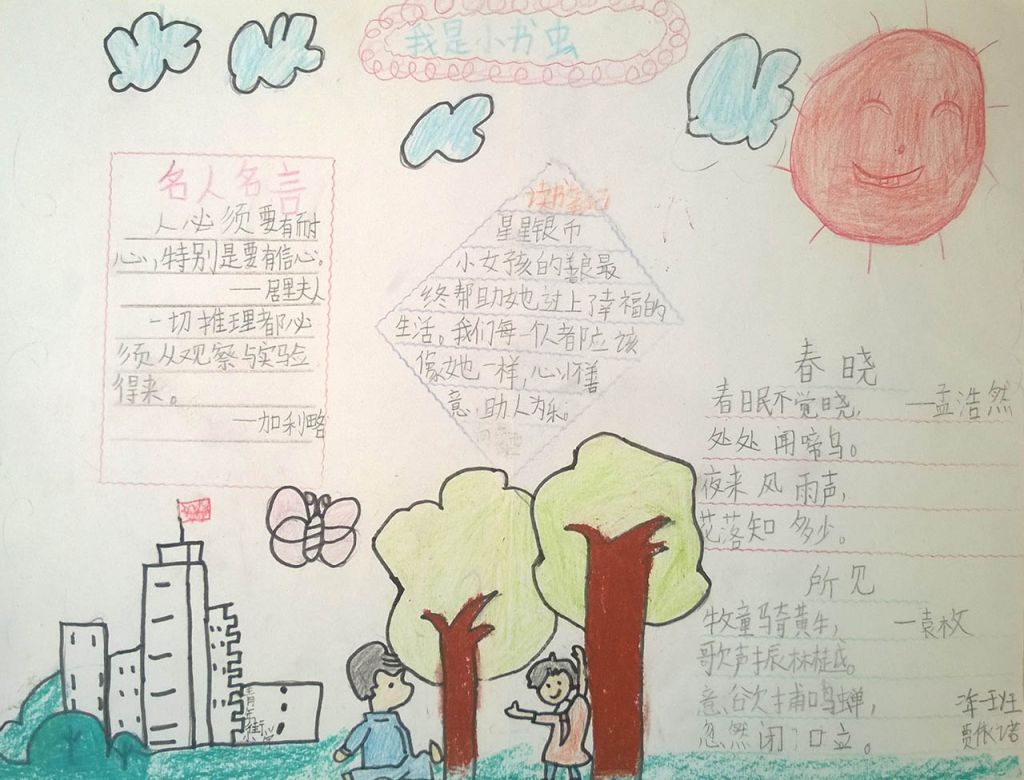 我是小书虫
名人名言
人必须要有耐
心,特别是要有信心。
——居里夫人
一切推理都必
须从观察与实验
得来。
——加利略
读书笔记
星星银币
小女孩的善良最
终帮助她过上了幸福的
生活。我们每一个人都应该
像她一样,心怀善
意,助人为乐。
春晓
春日眠不觉晓, —孟浩然
处处闻啼鸟。
夜来风雨声,
花落知多少。
所见
牧童骑黄牛, —袁枚
歌声振林樾。
意欲捕鸣蝉,
忽然闭口立。
青年街小学